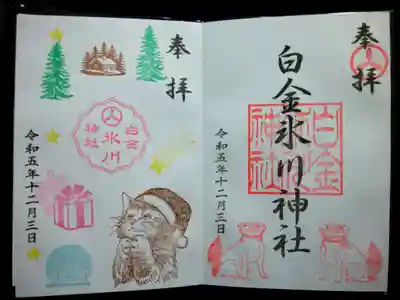 奉拝
白金氷川神社
白金氷川神社
令和五年十二月三日
奉拝
白金
氷川
神社
令和五年十二月三日